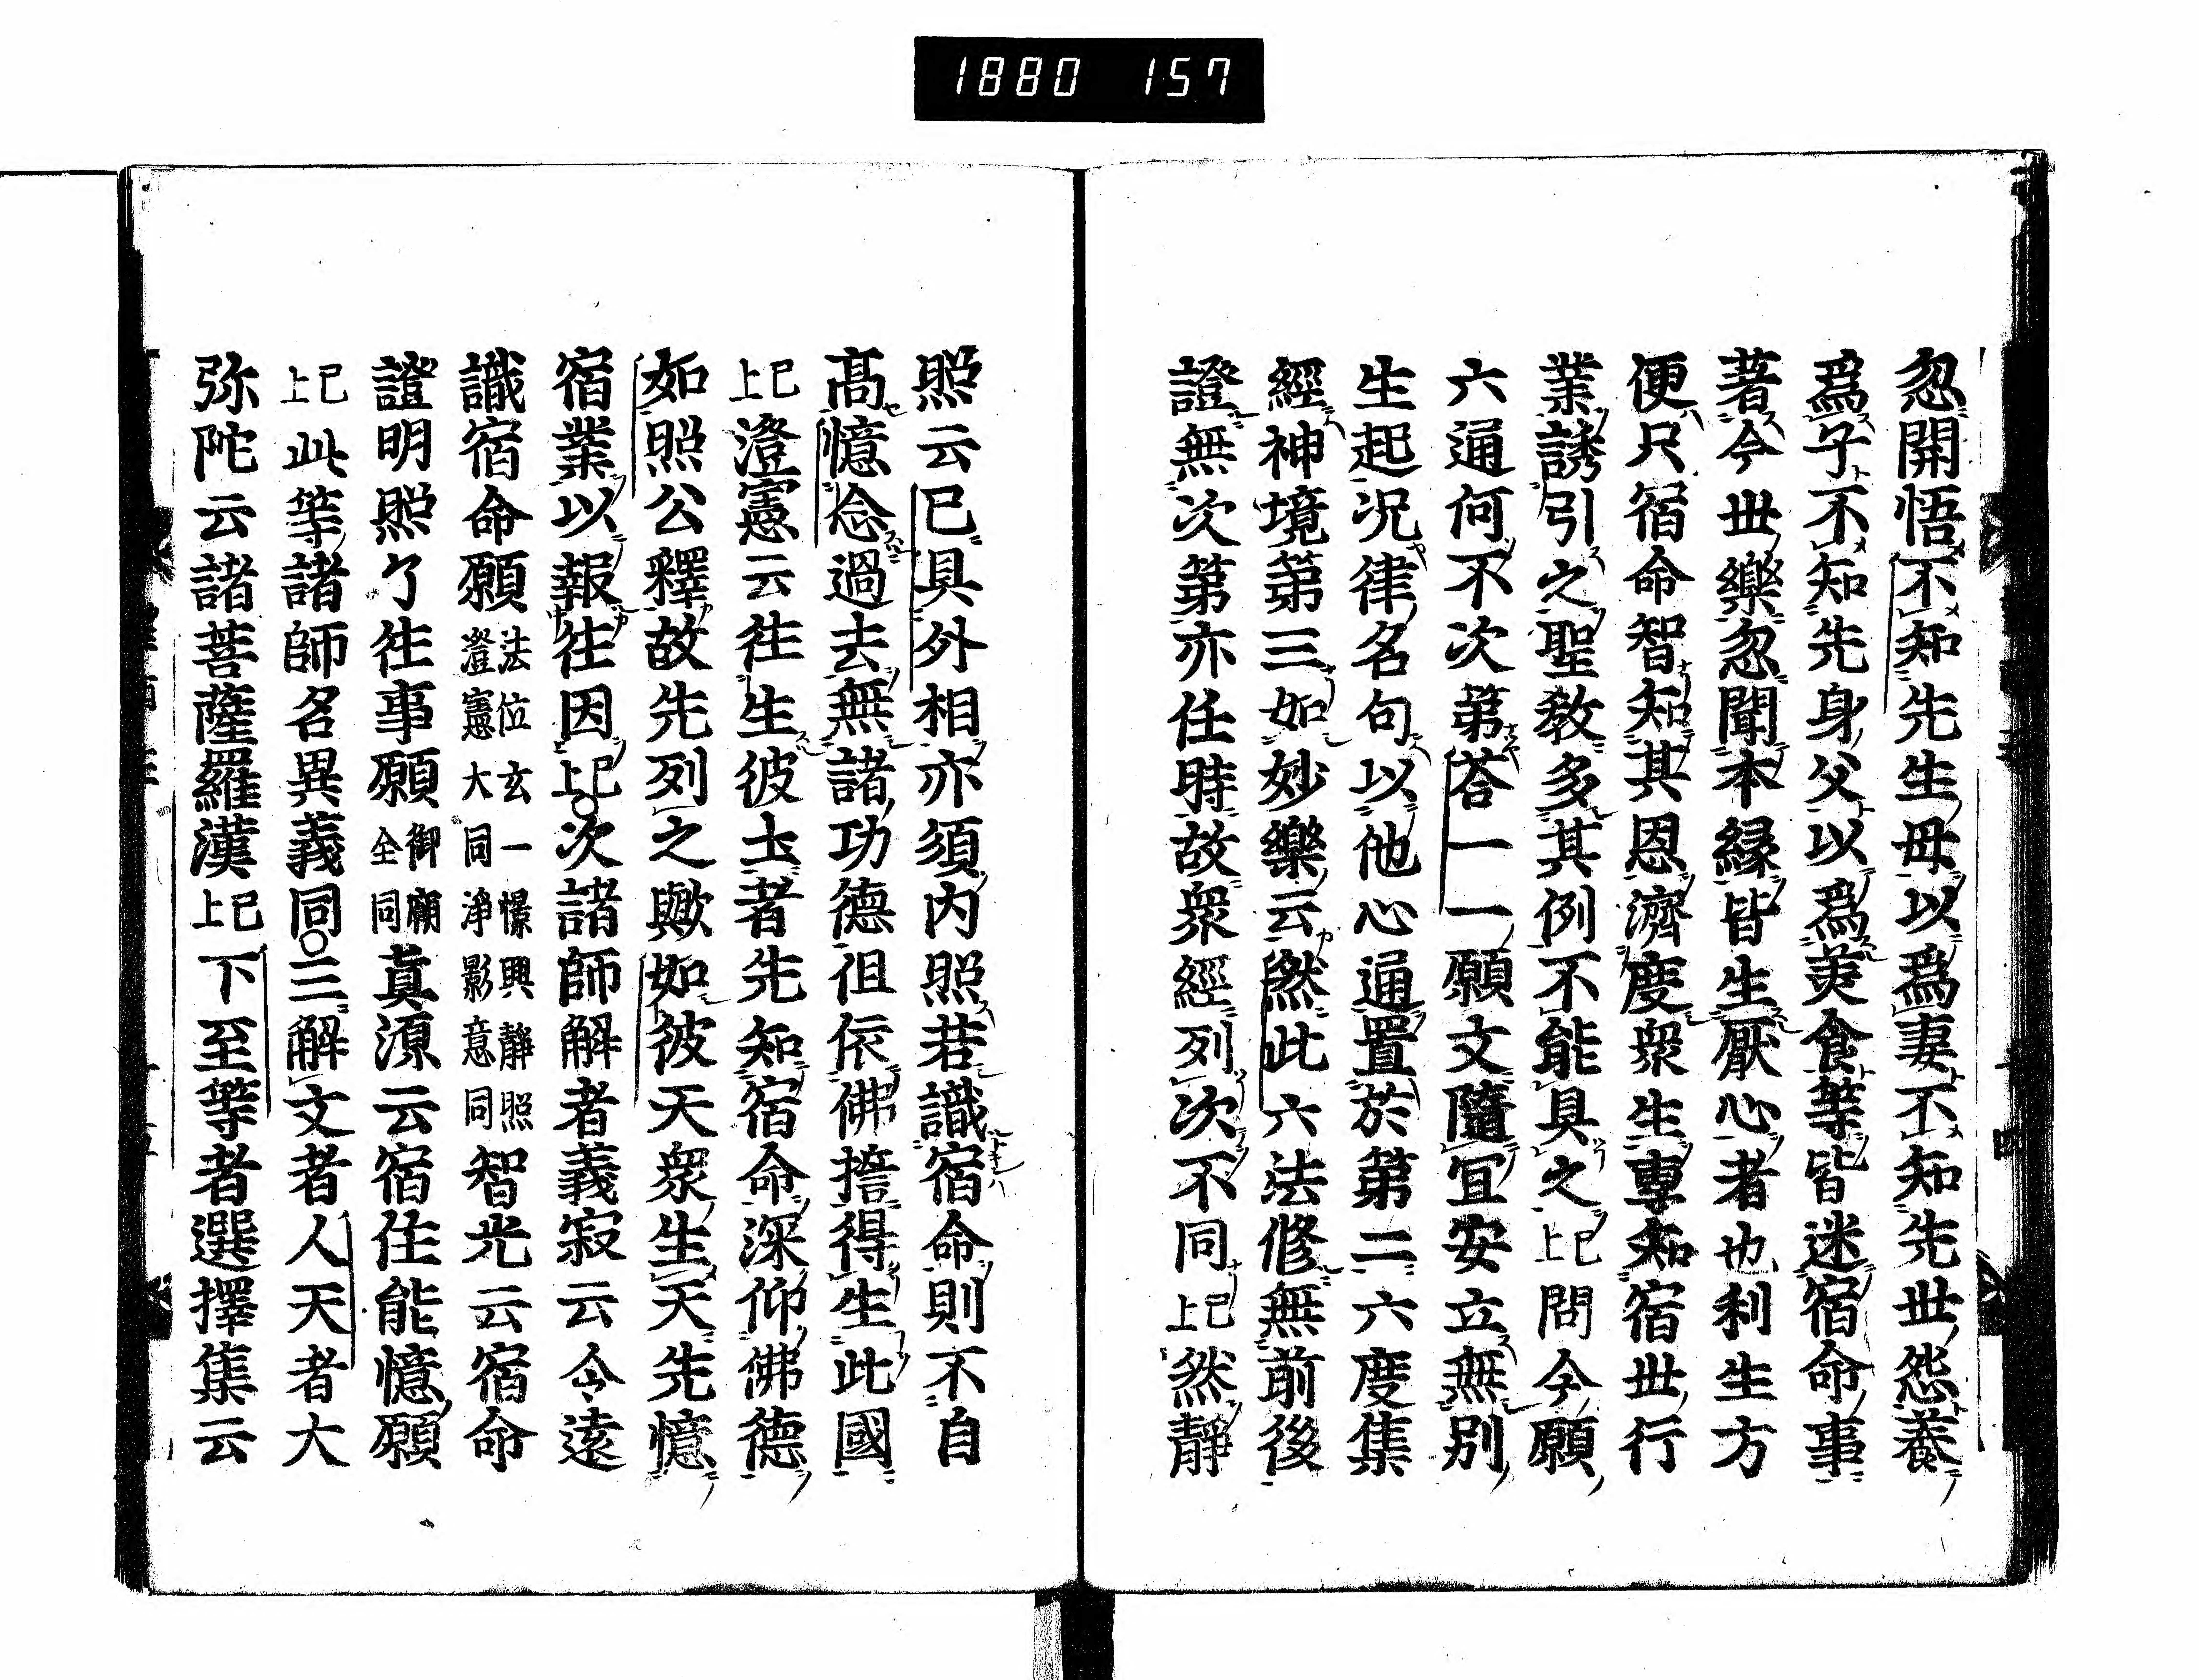 1880 157
忽開悟不知先生母以爲妻不知先世怨養
爲子不知先身父以爲美食等皆迷宿命事
著今世樂忽聞本縁皆生厭心者也利生方
便只宿命智知其恩濟度衆生專知宿世行
業誘引之聖教多其例不能具之已上問今願
六通何不次第荅一一願文隨宜安立無別
生起况律名句以他心通置於第二六度集
經神境第三如妙樂云然此六法修無前後
證無次第亦任時故衆經列次不同已上然靜
照云已具外相亦須内照若識宿命則不自
髙憶念過去無諸功德祖依佛擔得生此國
已上澄憲云徃生彼土者先知宿命深仰佛德
如照公釋故先列之歟如彼天衆生天先憶
宿業以報徃因已上次諸師解者義寂云令遠
識宿命願法位玄一憬興靜照澄憲大同淨影意同智光云宿命
證明照了徃事願御廟全同真源云宿住能憶願
已上此等諸師名異義同三解文者人天者大
弥陀云諸菩薩羅漢已上下至等者選擇集云